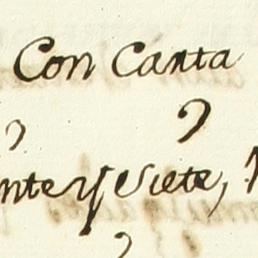 Con Canta
nte y Siete,